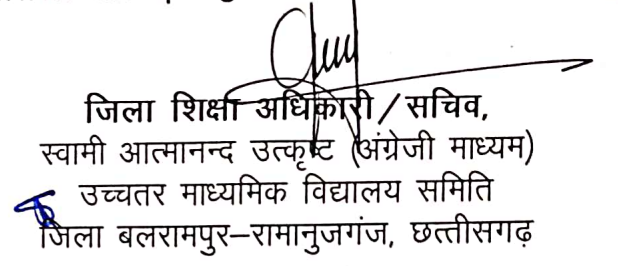 जिला शिक्षा अधिकारी/सचिव,
स्वामी आत्मानन्द उत्कृष्ट (अंग्रेजी माध्यम)
उच्चतर माध्यमिक विद्यालय समिति
जिला बलरामपुर–रामानुजगंज, छत्तीसगढ़